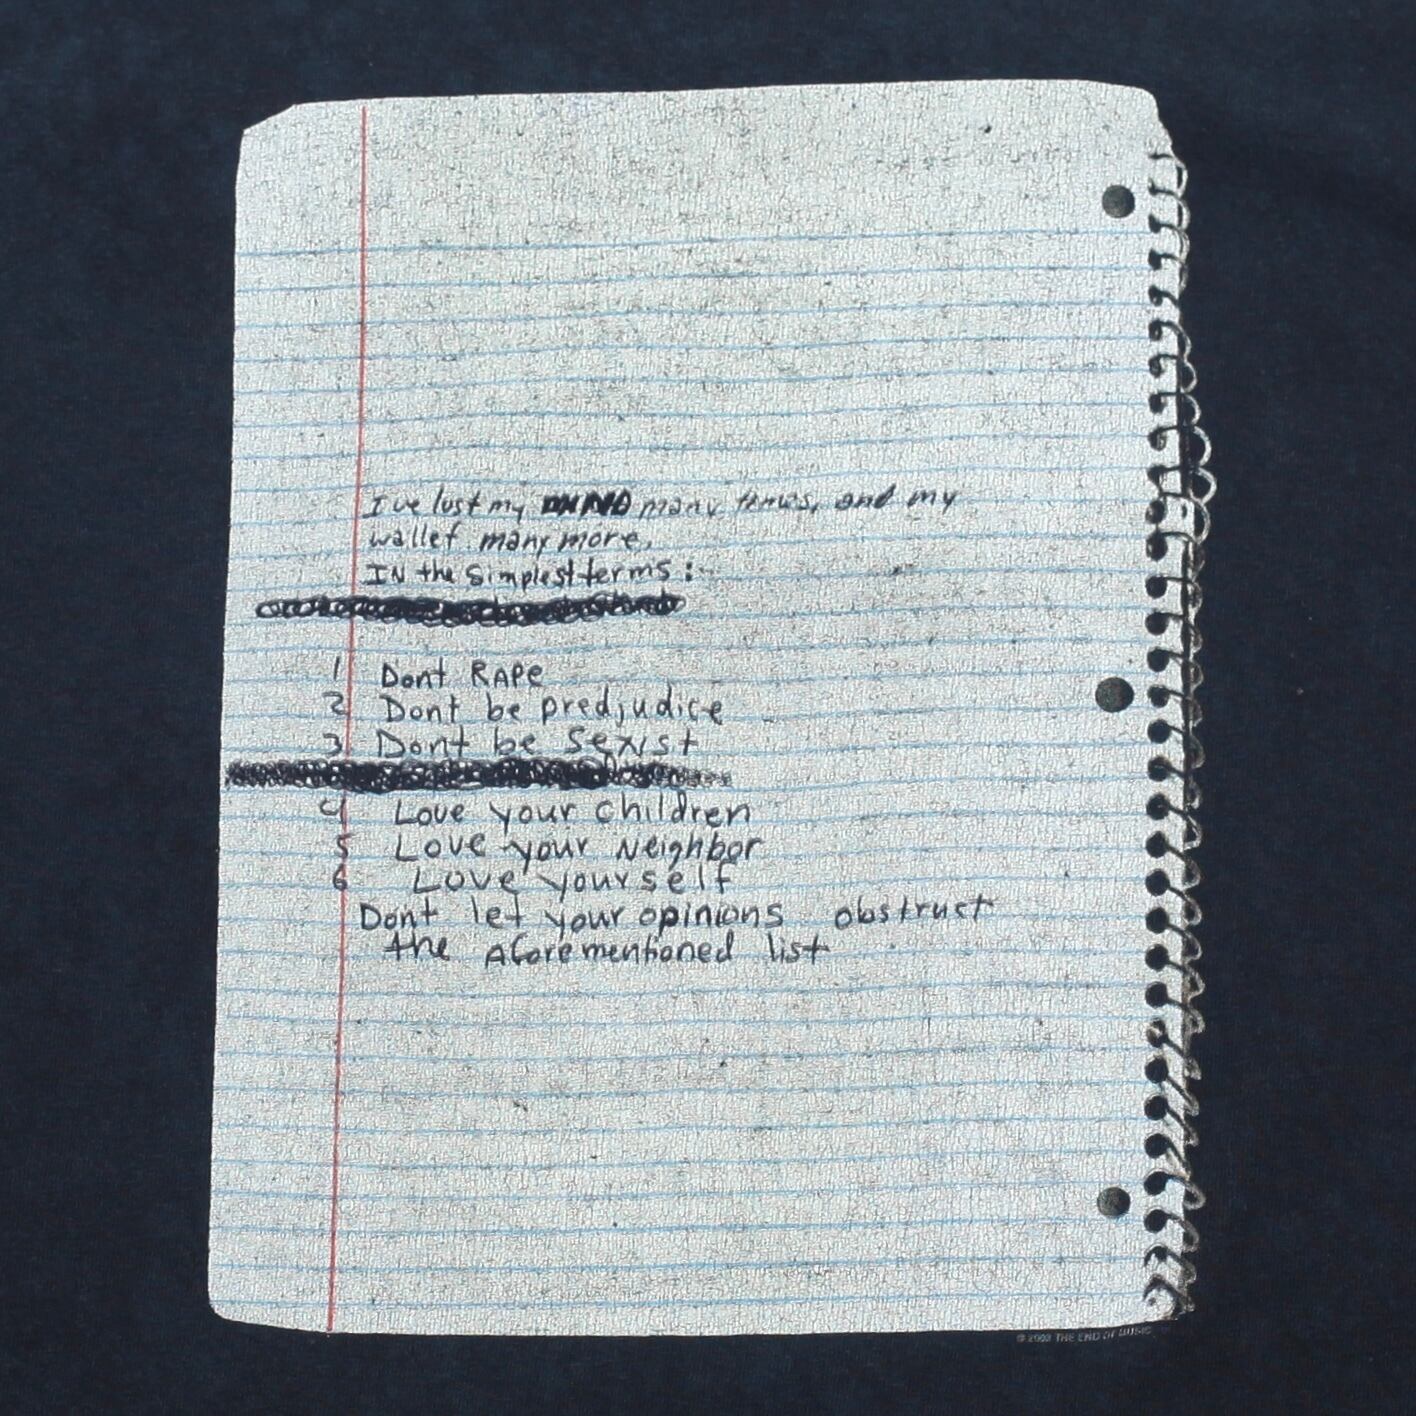 I've lost my MIND many times, and my
wallet many more.
IN the simplest terms:
1 Dont RAPe
2 Dont be predjudice
3 Dont be Sexist
4 Love your children
5 Love your Neighbor
6 Love yourself
Dont let your opinions obstruct
the aforementioned list
© 2003 THE END OF MUSIC